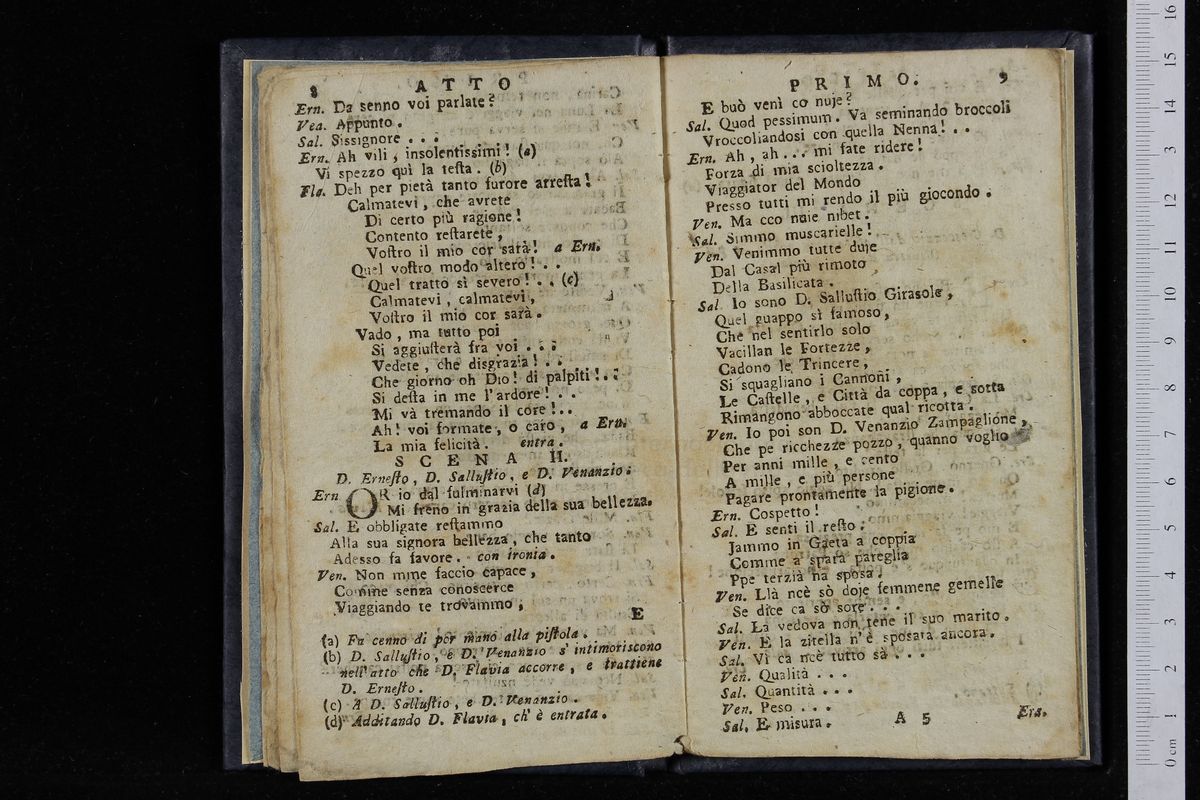 8 ATTO
Ern. Da senno voi parlate?
Vea. Appunto.
Sal. Sissignore . . .
Ern. Ah vili, insolentissimi! (a)
Vi spezzo quì la teſta. (b)
Fla. Deh per pietà tanto furore arreſta!
Calmatevi, che avrete
Di certo più ragione!
Contento reſtarete,
Voſtro il mio cor sarà! a Ern.
Quel voſtro modo altero! . .
Quel tratto sì severo! . . (c)
Calmatevi, calmatevi,
Voſtro il mio cor sarà.
Vado, ma tutto poi
Si aggiuſterà fra voi . . .
Vedete, che disgrazia! . .
Che giorno oh Dio! di palpiti! . .
Si deſta in me l'ardore! . .
Mi và tremando il core! . .
Ah! voi formate, o caro, a Ern.
La mia felicità. entra.
SCENA II.
D. Erneſto, D. Salluſtio, e D. Venanzio.
Ern OR io dal fulminarvi (d)
Mi freno in grazia della sua bellezza.
Sal. E obbligate reſtammo
Alla sua signora bellezza, che tanto
Adesso fa favore. con ironia.
Ven. Non mme faccio capace,
Comme senza conoscerce
Viaggiando te trovammo,
E
(a) Fa cenno di por mano alla piſtola.
(b) D. Salluſtio, e D. Venanzio s' intimoriscono
nell'atto che D. Flavia accorre, e trattiene
D. Erneſto.
(c) A D. Salluſtio, e D. Venanzio.
(d) Additando D. Flavia, ch' è entrata.
PRIMO. 9
E buò venì co nuje?
Sal. Quod pessimum. Va seminando broccoli
Vroccoliandosi con quella Nenna! . .
Ern. Ah, ah . . . mi fate ridere!
Forza di mia scioltezza.
Viaggiator del Mondo
Presso tutti mi rendo il più giocondo.
Ven. Ma cco nuie nibet.
Sal. Simmo muscarielle!
Ven. Venimmo tutte duje
Dal Casal più rimoto
Della Basilicata.
Sal. Io sono D. Salluſtio Girasole,
Quel guappo sì famoso,
Che nel sentirlo solo
Vacillan le Fortezze,
Cadono le Trincere,
Si squagliano i Cannoni,
Le Caſtelle, e Città da coppa, e sotta
Rimangono abboccate qual ricotta.
Ven. Io poi son D. Venanzio Zampaglione,
Che pe ricchezze pozzo, quanno voglio
Per anni mille, e cento
A mille, e più persone
Pagare prontamente la pigione.
Ern. Cospetto!
Sal. E senti il reſto.
Jammo in Gaeta a coppia
Comme a sparà pareglia
Ppe terzià na sposa.
Ven. Llà ncè sò doje femmene gemelle
Se dice ca sò sore . . .
Sal. La vedova non tene il suo marito.
Ven. E la zitella n'è sposata ancora.
Sal. Vi ca ncè tutto sà . . .
Ven. Qualità . . .
Sal. Quantità . . .
Ven. Peso . . .
Sal. E misura.
A 5 Ern.
0 cm 1 2 3 4 5 6 7 8 9 10 11 12 3 14 15 16